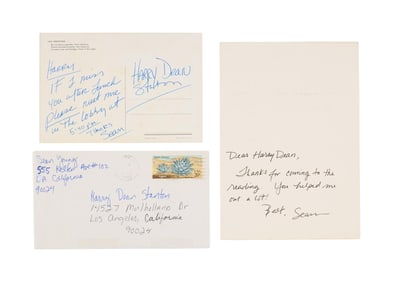 Harry
If I miss
you after lunch
Please meet me
in the lobby at
5:30 PM
Thanks
Sean
Harry Dean
Stanton
Sean Young
Apt #102
LA California
90024
Harry Dean Stanton
14527 Mulholland Dr
Los Angeles, California
90024
Dear Harry Dean,
Thanks for coming to the
reading. You helped me
out a lot!
Best, Sean